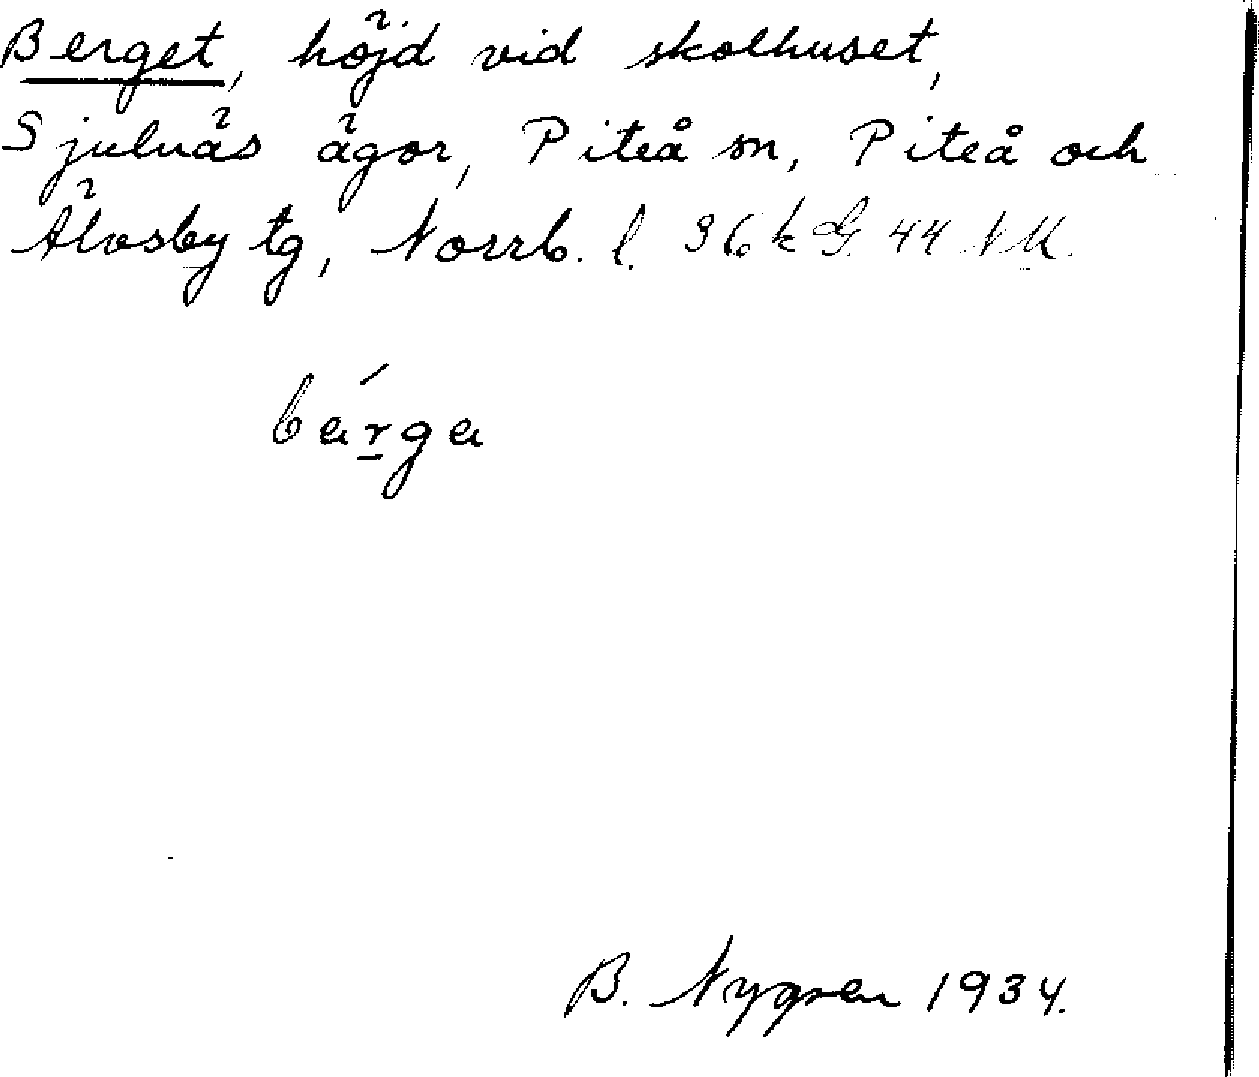 Berget, höjd vid skolhuset,
Sjulnäs ägor, Piteå sn, Piteå och
Älvsby tg, Norrb. l. 36 k G. 44 NK.
bärga
B. Nygren 1934.